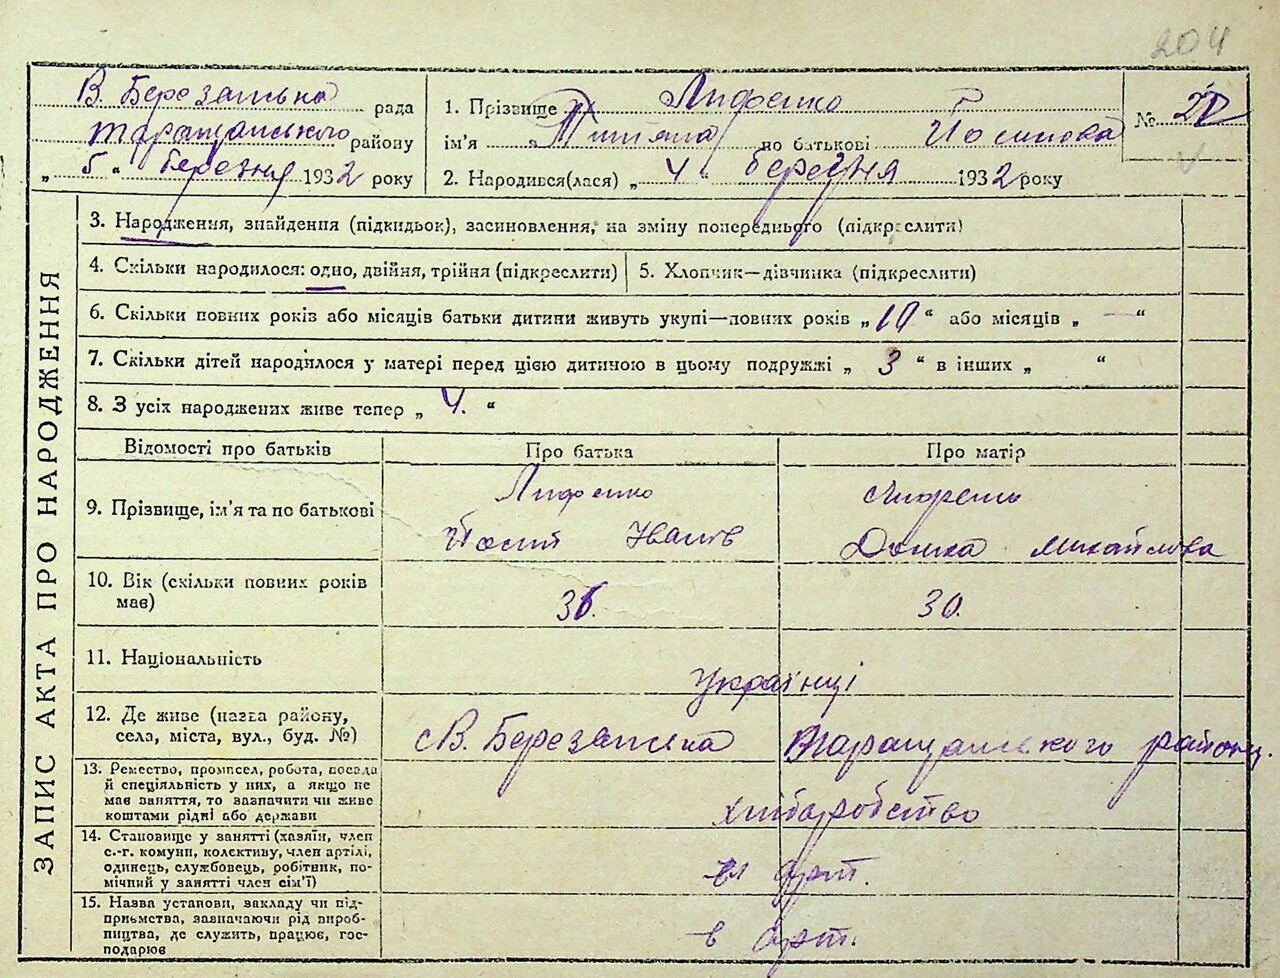 204
В. Березанська рада
Таращанського району
„ 6 “ березня 1932 року
1. Прізвище Лифенко
ім'я Тит'яна по батькові Йосипова
2. Народився(лася) „ 4 “ березня 1932 року
№
ЗАПИС АКТА ПРО НАРОДЖЕННЯ
3. Народження, знайдення (підкидьок), засиновлення, на зміну попереднього (підкреслити)
4. Скільки народилося: одно, двійня, трійня (підкреслити)
5. Хлопчик—дівчинка (підкреслити)
6. Скільки повних років або місяців батьки дитини живуть укупі—повних років „ 10 “ або місяців „ — “
7. Скільки дітей народилося у матері перед цією дитиною в цьому подружжі „ 3 “ в інших „ “
8. З усіх народжених живе тепер „ 4. “
Відомості про батьків Про батька Про матір
9. Прізвище, ім'я та по батькові
Лифенко
Йосип Іванів
Домка Михайлова
10. Вік (скільки повних років
має)
36. 30.
11. Національність
Українці
12. Де живе (назва району,
села, міста, вул., буд. №)
с В. Березанська Таращанського району.
13. Ремество, промисел, робота, посада
й спеціяльність у них, а якщо не
має заняття, то зазначити чи живе
коштами рідні або держави
хліборобство
14. Становище у занятті (хазяїн, член
с.-г. комуни, колективу, член артілі,
одинець, службовець, робітник, по-
мічний у занятті член сім'ї)
чл арт.
15. Назва установи, закладу чи під-
приємства, зазначаючи рід вироб-
ництва, де служить, працює, гос-
подарює
в арт.